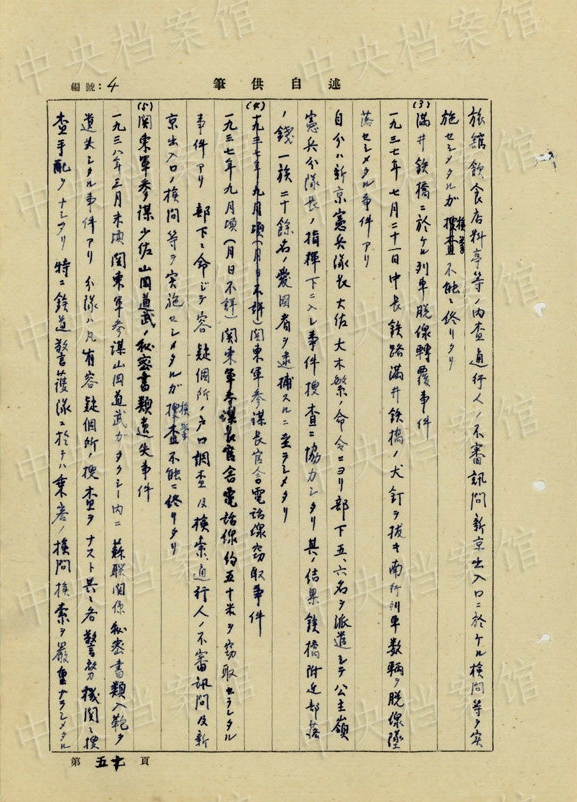 述自供筆
編號：4
旅舘飲食店料亭等ノ内査通行人ノ不審訊問新京出入口ニ於ケル検問等ヲ実
施セシメタルガ検挙捜査不能ニ終リタリ
(3) 満井鉄橋ニ於ケル列車脱線轉覆事件
一九三七年七月二十一日中長鉄路満井鉄橋ノ犬釘ヲ抜キ南行列車数輌ヲ脱線墜
落セシメタル事件アリ
自分ハ新京憲兵隊長大佐大木繁ノ命令ニヨリ部下五、六名ヲ派遣シテ公主嶺
憲兵分隊長ノ指揮下ニ入レ事件捜査ニ協力シタリ其ノ結果鉄橋附近部落
ノ錢一族二十餘名ノ愛国者ヲ逮捕スルニ至ラシメタリ
(4) 一九三七年九月頃(月日不詳)関東軍参謀長官舎電話線窃取事件
一九三七年九月頃(月日不詳)関東軍参謀長官舎電話線約五十米ヲ窃取セラレタル
事件アリ 部下ニ命ジテ容疑個所ノ戸口調査及検索、通行人ノ不審訊問及新
京出入口ノ検問等ヲ実施セシメタルガ検挙捜査不能ニ終リタリ
(5) 関東軍参謀少佐山岡道武ノ秘密書類遺失事件
一九三八年三月末頃関東軍参謀山岡道武ガタクシー内ニ蘇聯関係秘密書類入鞄ヲ
遺失シタル事件アリ分隊ハ凡有容疑個所ノ捜査ヲナスト共ニ各警務機関ニ捜
査手配ヲナシタリ特ニ鉄道警護隊ニ於テハ乗客ノ検問検索ヲ嚴重ナラシメタル
第 五七 頁
中央档案馆
中央档案馆
中央档案馆
中央档案馆
中央档案馆
中央档案馆